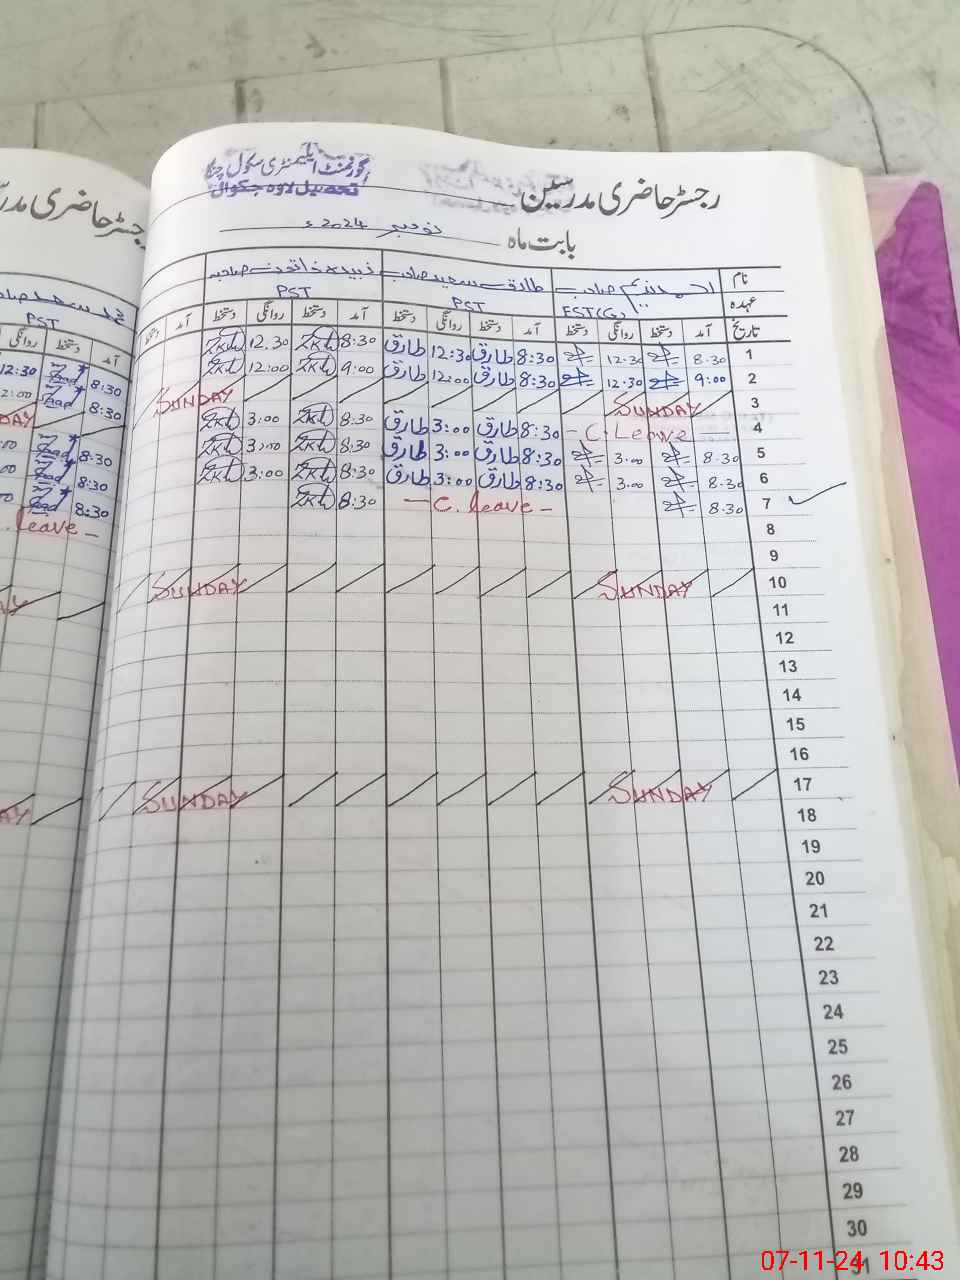 گورنمنٹ ایلیمنٹری سکول
تحصیل لاوہ چکوال
رجسٹر حاضری مدرسین
بابت ماہ نومبر 2024ء
نام صاحب طارق سعید صاحب زبیدہ خاتون صاحبہ
عہدہ EST(G) PST PST PST
تاریخ آمد دستخط روانگی دستخط آمد دستخط روانگی دستخط آمد دستخط روانگی دستخط آمد دستخط
1 8.30 12.30 8:30 طارق 12:30 طارق 8:30 12.30 8:30 12:30
2 9:00 12.30 8:30 طارق 12:00 طارق 9:00 12:00 8:30 2:00
3 SUNDAY SUNDAY
4 - C. Leave - 8:30 طارق 3:00 طارق 8:30 3:00 8:30
5 8.30 3.00 8:30 طارق 3:00 طارق 8:30 3:00 8:30
6 8.30 3.00 8:30 طارق 3:00 طارق 8:30 3:00 8:30
7 8.30 - C. leave - 8:30 leave -
8
9
10 SUNDAY SUNDAY
11
12
13
14
15
16
17 SUNDAY SUNDAY
18
19
20
21
22
23
24
25
26
27
28
29
30
31
07-11-24 10:43